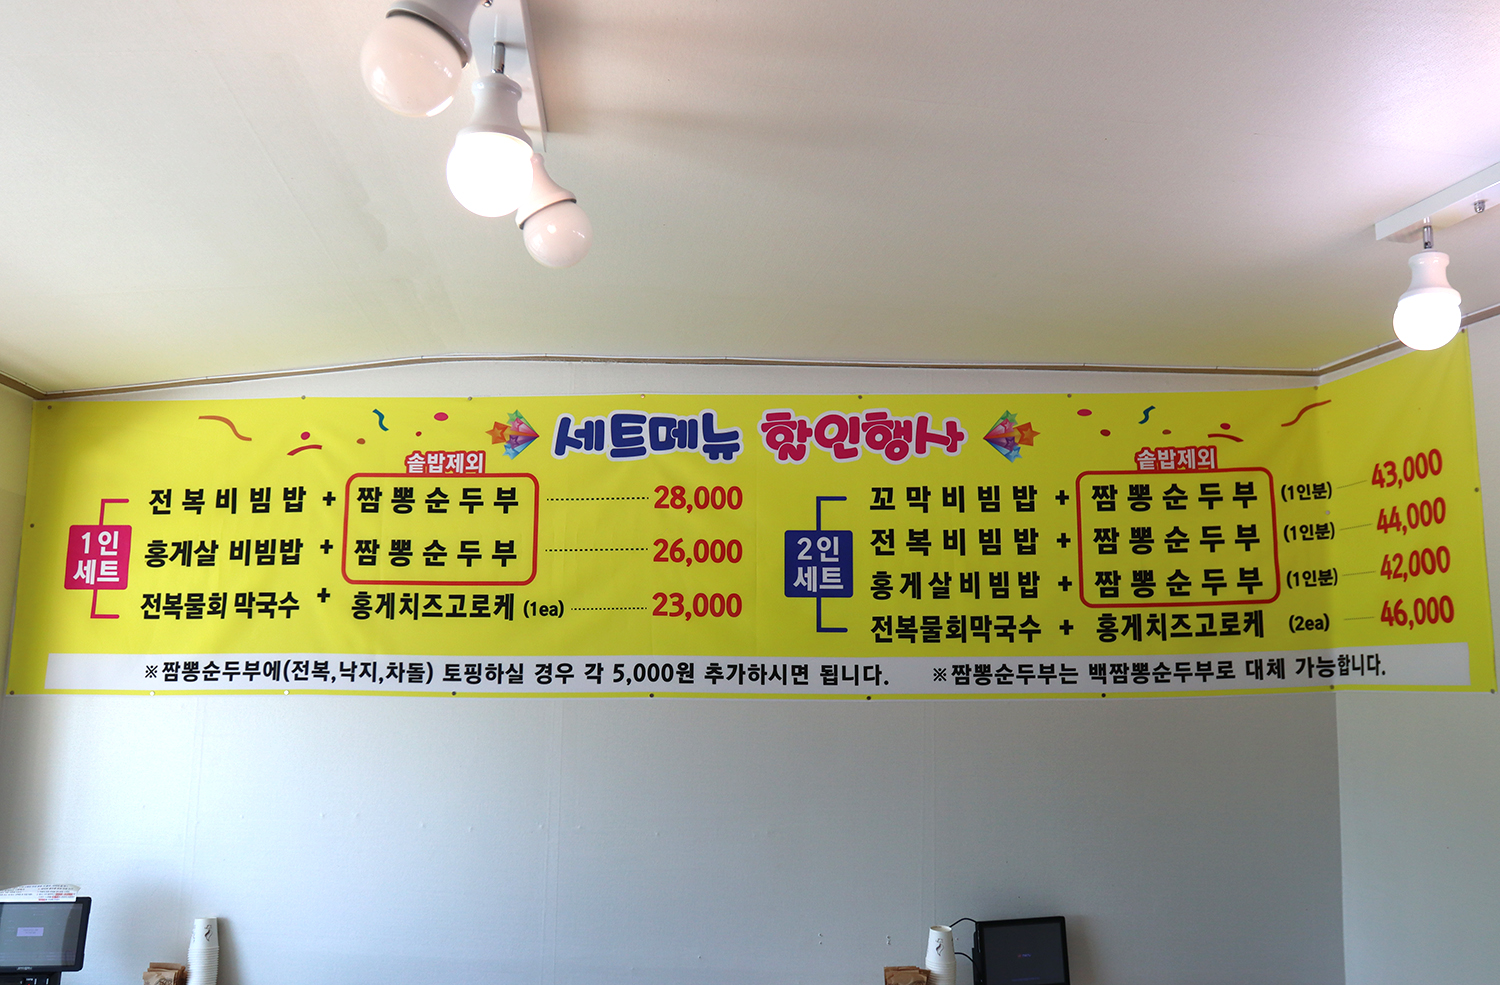 세트메뉴 할인행사
솥밥제외
1인
세트
전복비빔밥 + 짬뽕순두부 28,000
홍게살 비빔밥 + 짬뽕순두부 26,000
전복물회 막국수 + 홍게치즈고로케 (1ea) 23,000
솥밥제외
2인
세트
꼬막비빔밥 + 짬뽕순두부 (1인분) 43,000
전복비빔밥 + 짬뽕순두부 (1인분) 44,000
홍게살비빔밥 + 짬뽕순두부 (1인분) 42,000
전복물회막국수 + 홍게치즈고로케 (2ea) 46,000
※짬뽕순두부에(전복,낙지,차돌) 토핑하실 경우 각 5,000원 추가하시면 됩니다. ※짬뽕순두부는 백짬뽕순두부로 대체 가능합니다.